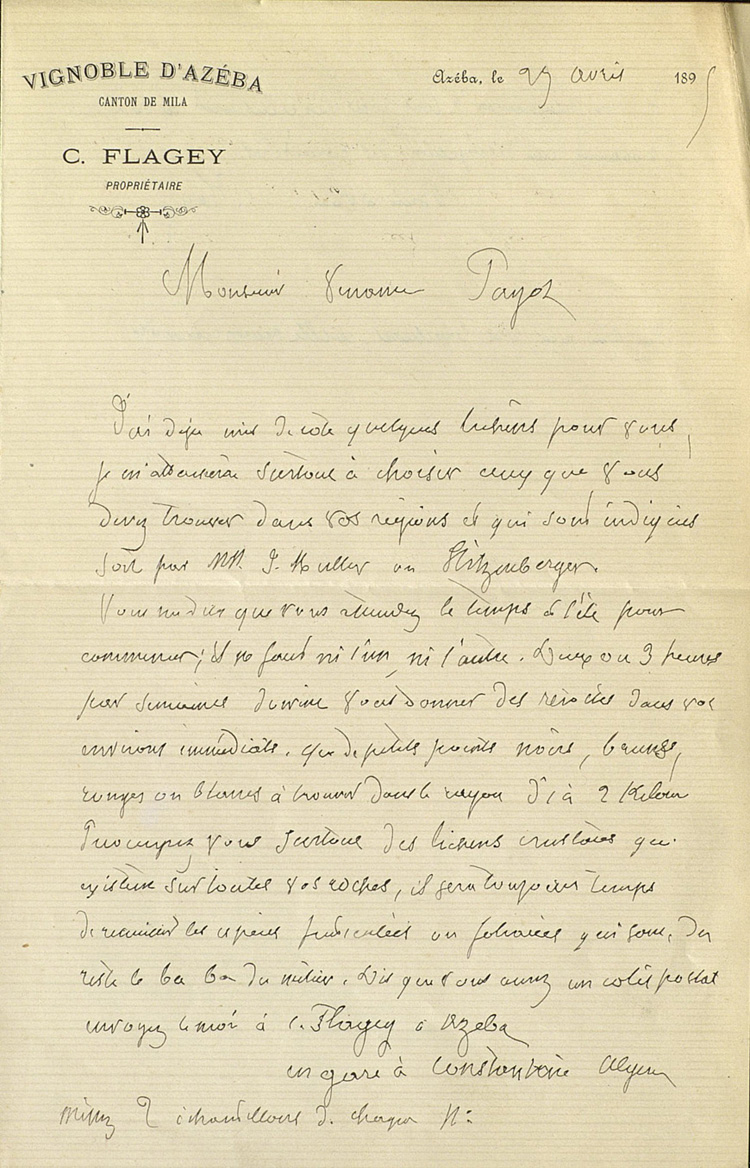 VIGNOBLE D'AZÉBA
CANTON DE MILA
C. FLAGEY
PROPRIÉTAIRE
Azéba, le 27 avril 1895
Monsieur Venance Payot
J'ai déja mis de coté quelques lichens pour vous,
je m'attacherai surtout à choisir ceux que vous
devez trouver dans vos régions et qui sont indiqués
soit par MM. J. Muller ou Stitzenberger.
Vous me dites que vous attendez le temps et l'été pour
commencer; il ne faut ni l'un, ni l'autre. Deux ou 3 heures
par semaine vous donner des récoltes dans vos
environs immédiats. Que de petits points noirs, bruns,
rouges ou blancs à trouver dans le rayon d'1 à 2 Kilom
Préoccupez vous surtout des lichens crustacés qui
existent sur toutes vos roches, il sera toujours temps
de les espèces fruticulées ou foliacées qui sont, du
reste le ba ba du métier. Dès que vous aurez un colis postal
envoyez le moi à C. Flagey à Azéba
en gare à Constantine Algérie
Mettez 2 échantillons de chaque N°